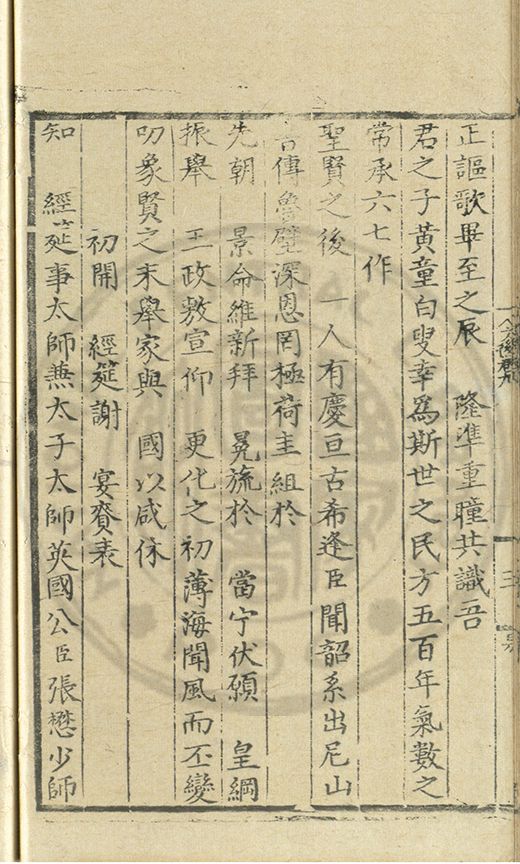 正謳歌畢至之辰　隆準重瞳共識吾
君之子黃童白叟幸爲斯世之民方五百年氣數之
常承六七作
聖賢之後　一人有慶亘古希逢臣聞韶系出尼山
書傳魯壁深恩罔極荷圭組於
先朝　景命維新拜　冕旒於　當宁伏願　皇綱
振舉　王政敷宣仰　更化之初薄海聞風而丕變
叨象賢之末舉家與　國以咸休
初開　經筵謝　宴賚表
知　經筵事太師兼太子太師英國公臣張懋少師
三